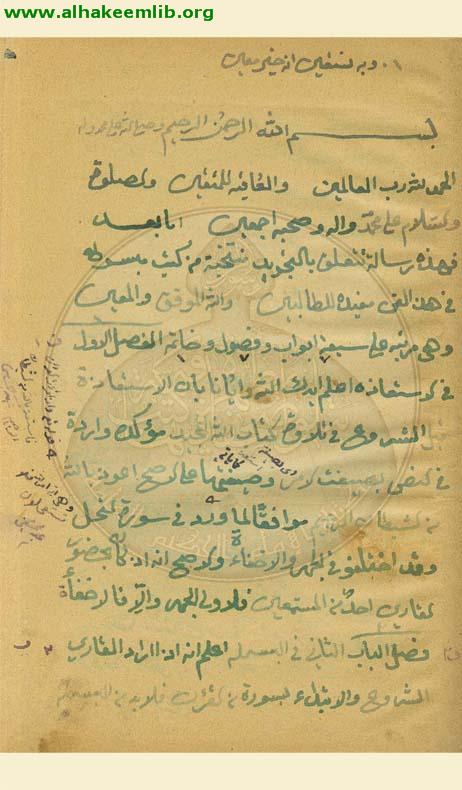 www.alhakeemlib.org
وبه نستعين انه خير معين
بسم الله الرحمن الرحيم وصلى الله على محمد واله
الحمد لله رب العالمين والعاقبة للمتقين والصلوة
والسلام على محمد واله وصحبه اجمعين اما بعد
فهذه رسالة تتعلق بالتجويد منتخبة من كتب مبسوطه
في هذا الفن مفيدة للطالبين والله الموفق والمعين
وهي مرتبه على سبعة ابواب وفصول وخاتمه الفصل الاول
في الاستعاذه اعلم ايدك الله وايانا بان الاستعاذة
قبل الشروع في تلاوة كتاب الله المجيد مؤكدة واردة
في النص بصيغت الامر وصيغتها على الاصح اعوذ بالله
من الشيطان الرجيم موافقا لما ورد في سورة النحل
وقد اختلفو في الجهر والاخفاء والاصح انه اذا كان بحضور
القاري احد من المستمعين فالاولى الجهر والا فالاخفاء
فصل الباب الثاني في البسمله اعلم انه اذا اراد القاري
الشروع والابتداء بسورة من القرآن فلا بد من البسمله